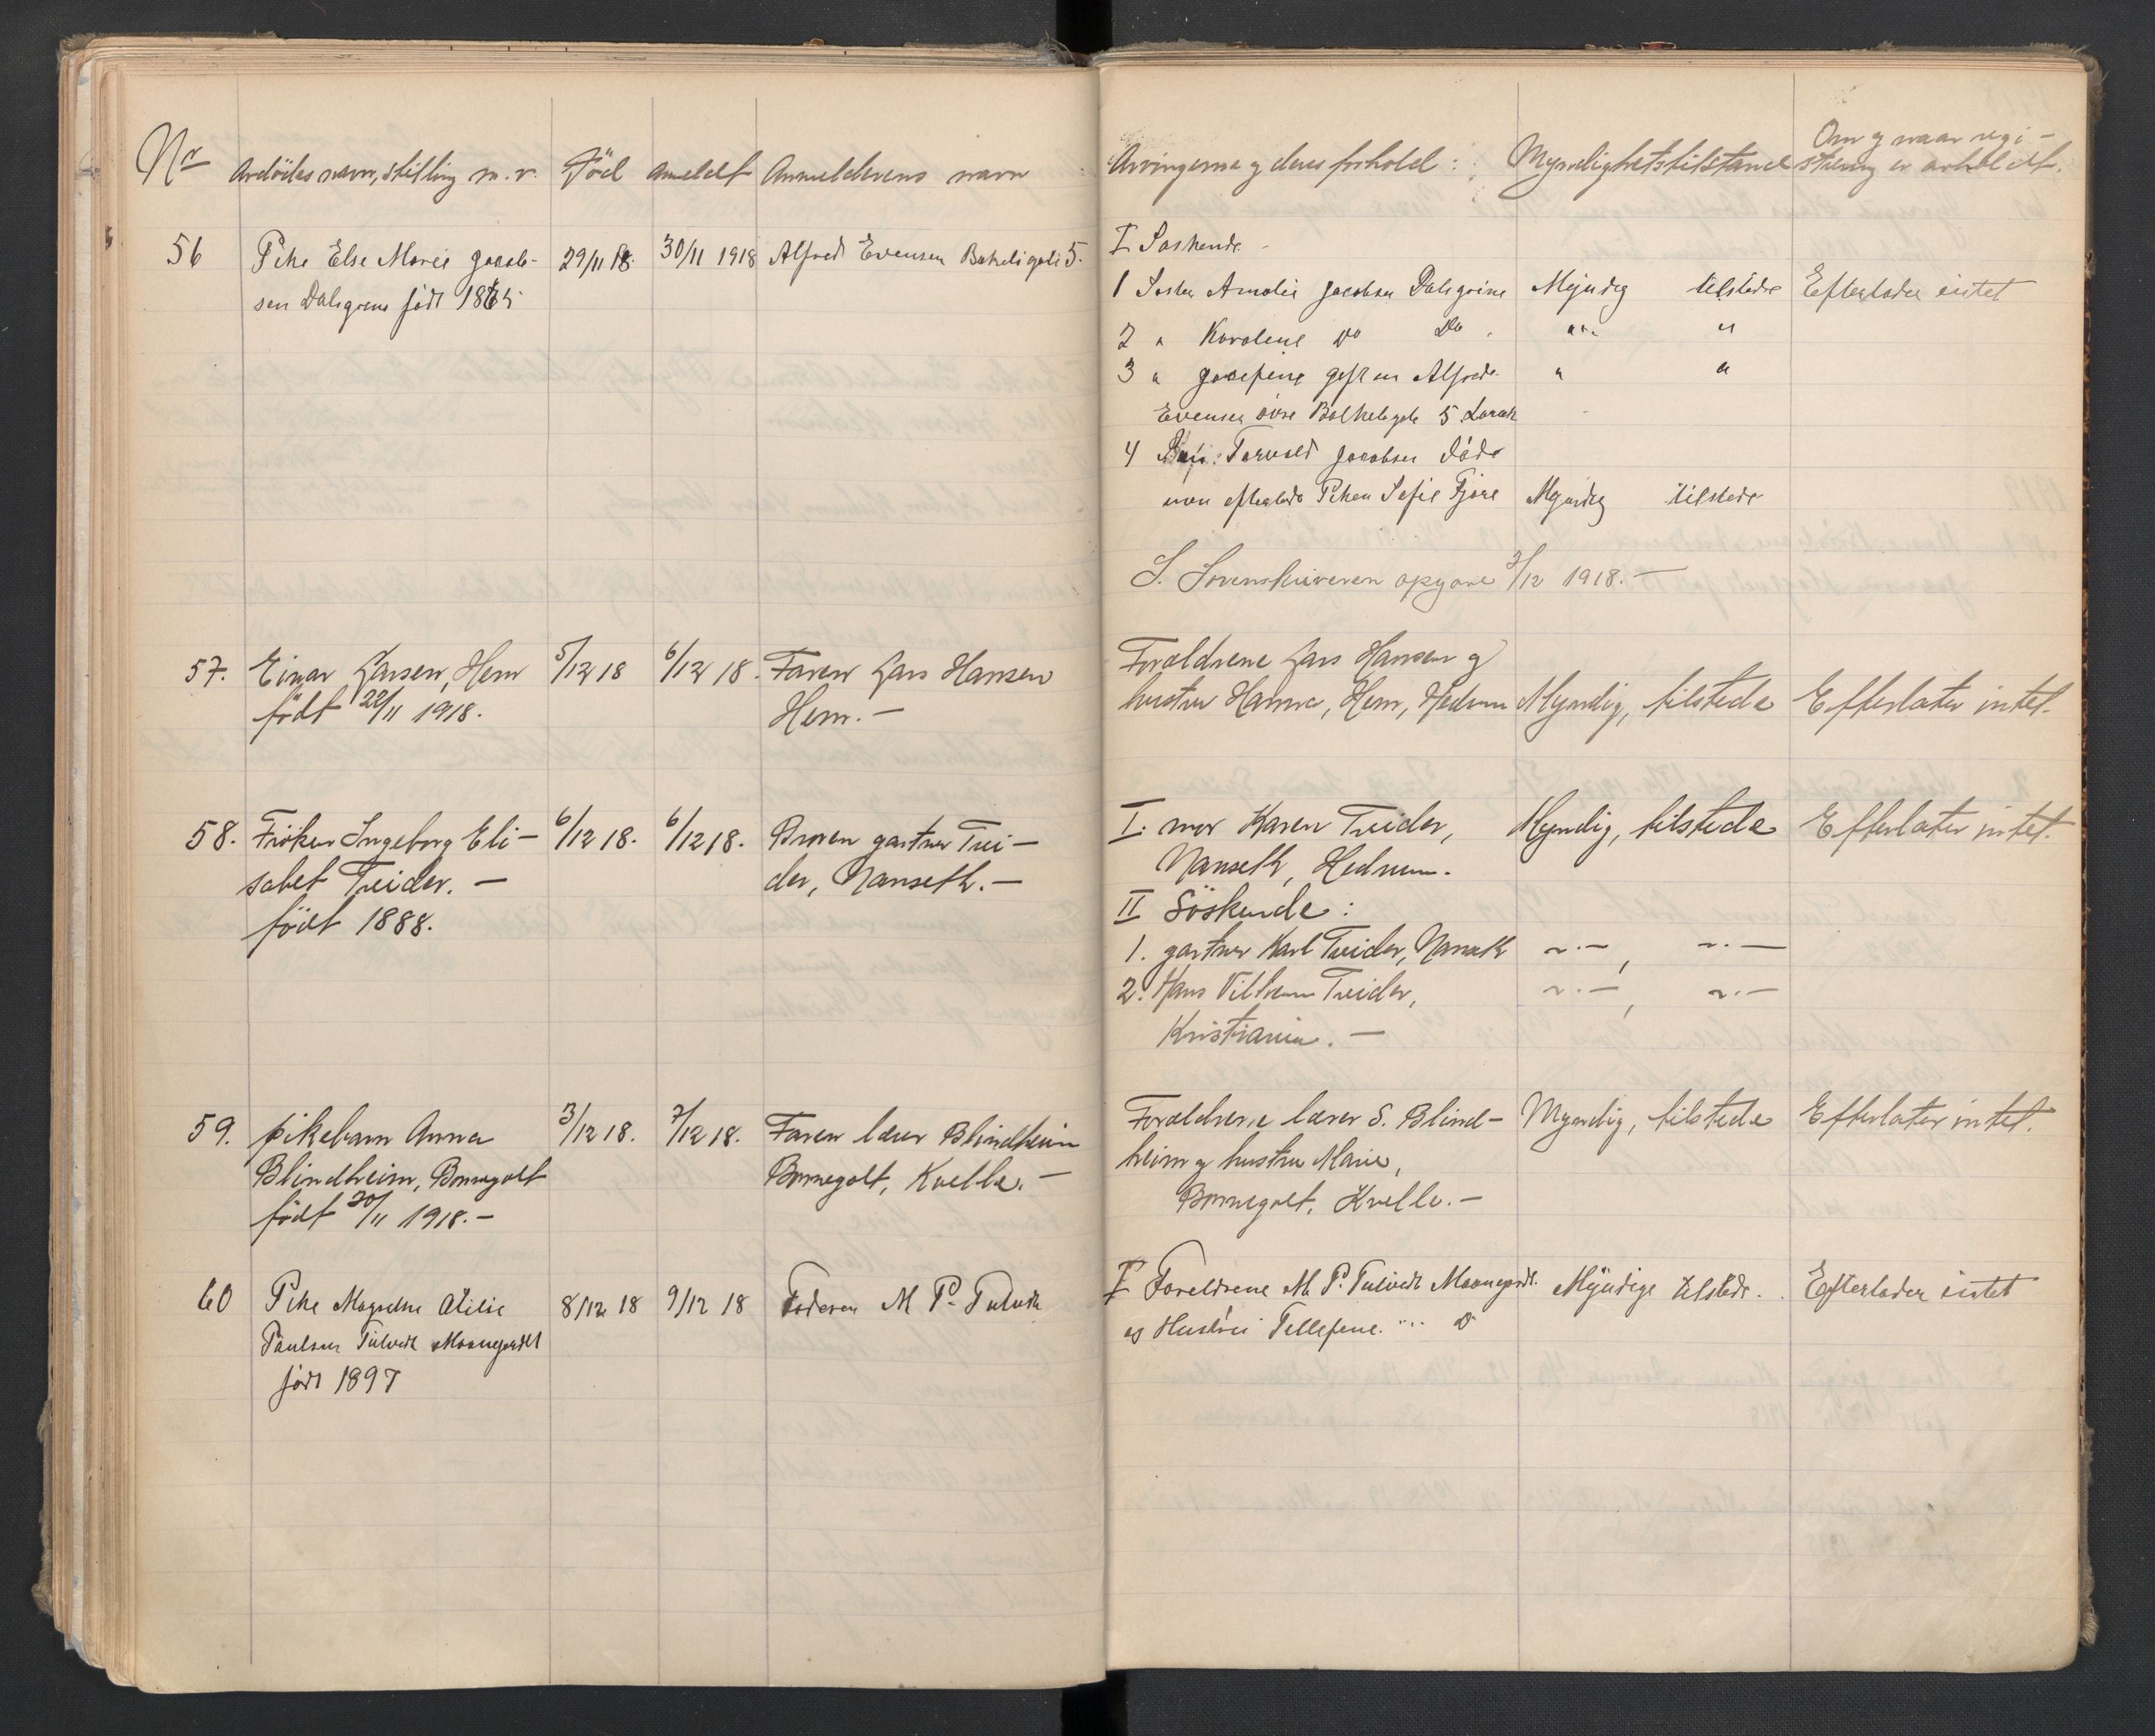 Nr Avdödes navn, stilling m. v. Död anmeldt Anmelderens navn
56 Pike Else Marie Jacob- 29/11 18. 30/11 1918 Alfred Evensen 5.
sen Dalsgrene født 1865
57. Einar Larsen, Hem 5/12 18 6/12 18. Faren Lars Hansen
født 22/11 1918. Hem. -
58. Fröken Ingeborg Eli- 6/12 18. 6/12 18. Broren gartner Trei-
sabet Treider. - der, Nanseth. -
født 1888.
59. pikebarn Anna 3/12 18. 7/12 18. Faren lærer Blindheim
Blindheim, Bonnegolt Bonnegolt, Kvelle. -
født 20/11 1918. -
60 Pike Magrethe Otilie 8/12 18 9/12 18 Faderen M P. Tulvedt
Paulsen Tulvedt
født 1897
Arvingerne og deres forhold: Myndighetstilstand Om og naar regi-
strering er avholdt.
I Søskende -
1 Søster Amalie Jacobsen Dalsgrene Myndig tilstede Efterlader intet
2 " Karoline Do Do. " "
3 " Josefine gift m Alfred " "
Evensen øvre 5 Larvik
4 Torvald Jacobsen død
men efterlader Piken Sofie Fjære Myndig tilstede
S. Sorenskriveren opgave 3/12 1918. -
Forældrene Lars Hansen og
hustru Hanna, Hem, Hedrum Myndig, tilstede Efterlater intet.
I: mor Karen Treider, Myndig, tilstede Efterlater intet.
Nanseth, Hedrum.
II Söskende:
1. gartner Karl Treider, Nanseth -"- , -"-
2. Hans Vilhelm Treider, -"- , -"-
Kristiania. -
Forældrene lærer S. Blind- Myndig, tilstede Efterlater intet.
heim og hustru Marie,
Bonnegolt, Kvelle. -
I Foreldrene M. P. Tulvedt Myndige tilstede. Efterlader intet
og Hustru Tellefine. " Do